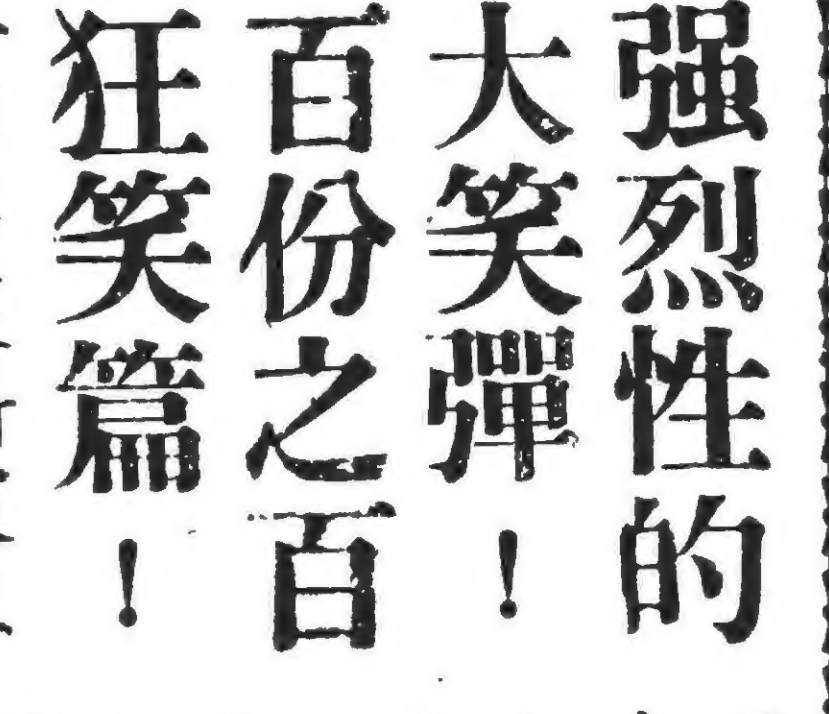 强烈性的
大笑彈！
百份之百
狂笑篇！